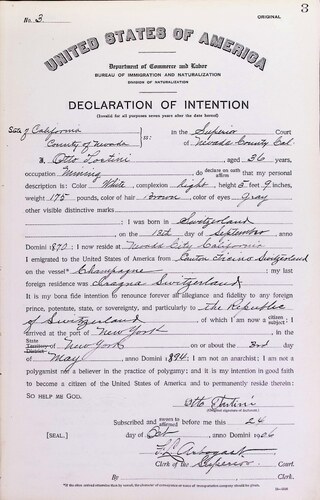 3
No. 3
ORIGINAL
UNITED STATES OF AMERICA
Department of Commerce and Labor
BUREAU OF IMMIGRATION AND NATURALIZATION
DIVISION OF NATURALIZATION
DECLARATION OF INTENTION
(Invalid for all purposes seven years after the date hereof)
State of California
County of Nevada
ss:
in the Superior Court
of Nevada County Cal
I, Otto Tortini, aged 36 years,
occupation Mining, do declare on oath affirm that my personal
description is: Color White, complexion light, height 5 feet 9 inches,
weight 175 pounds, color of hair brown, color of eyes gray
other visible distinctive marks
; I was born in Switzerland
on the 13th day of September, anno
Domini 1870; I now reside at Nevada City California
I emigrated to the United States of America from Canton Ticino Switzerland
on the vessel* Champagne; my last
foreign residence was Switzerland.
It is my bona fide intention to renounce forever all allegiance and fidelity to any foreign
prince, potentate, state, or sovereignty, and particularly to the Republic
of Switzerland, of which I am now a citizen subject; I
arrived at the port of New York, in the
State Territory District of New York on or about the 3rd day
of May, anno Domini 1894; I am not an anarchist; I am not a
polygamist nor a believer in the practice of polygamy; and it is my intention in good faith
to become a citizen of the United States of America and to permanently reside therein:
SO HELP ME GOD.
Otto Tortini
(Original signature of declarant.)
Subscribed and sworn to affirmed before me this 24
[SEAL.] day of Oct, anno Domini 1906
F L Arbogast
Clerk of the Superior Court.
By, Clerk.